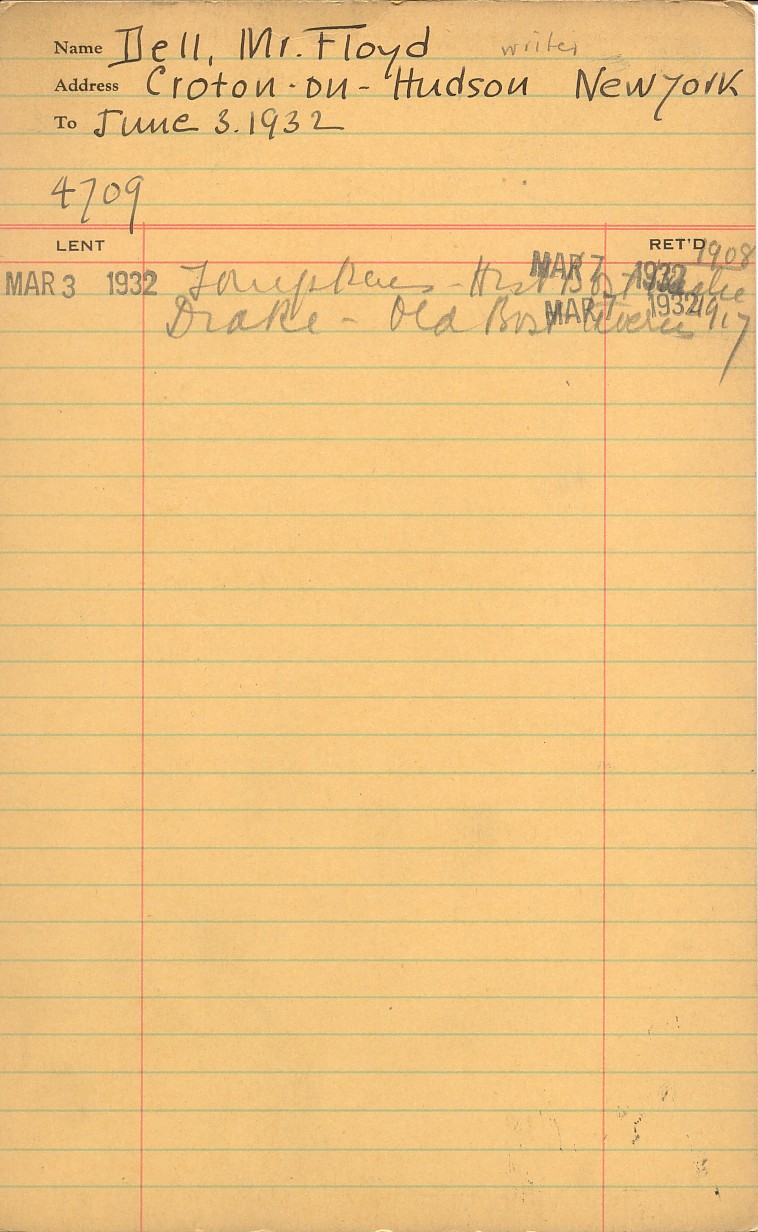 Name Dell, Mr. Floyd writer
Address Croton-on-Hudson New York
To June 3.1932
4709
LENT RET'D
1908
MAR 3 1932 MAR 7 1932
Drake - Old Bost MAR 7 1932 1917